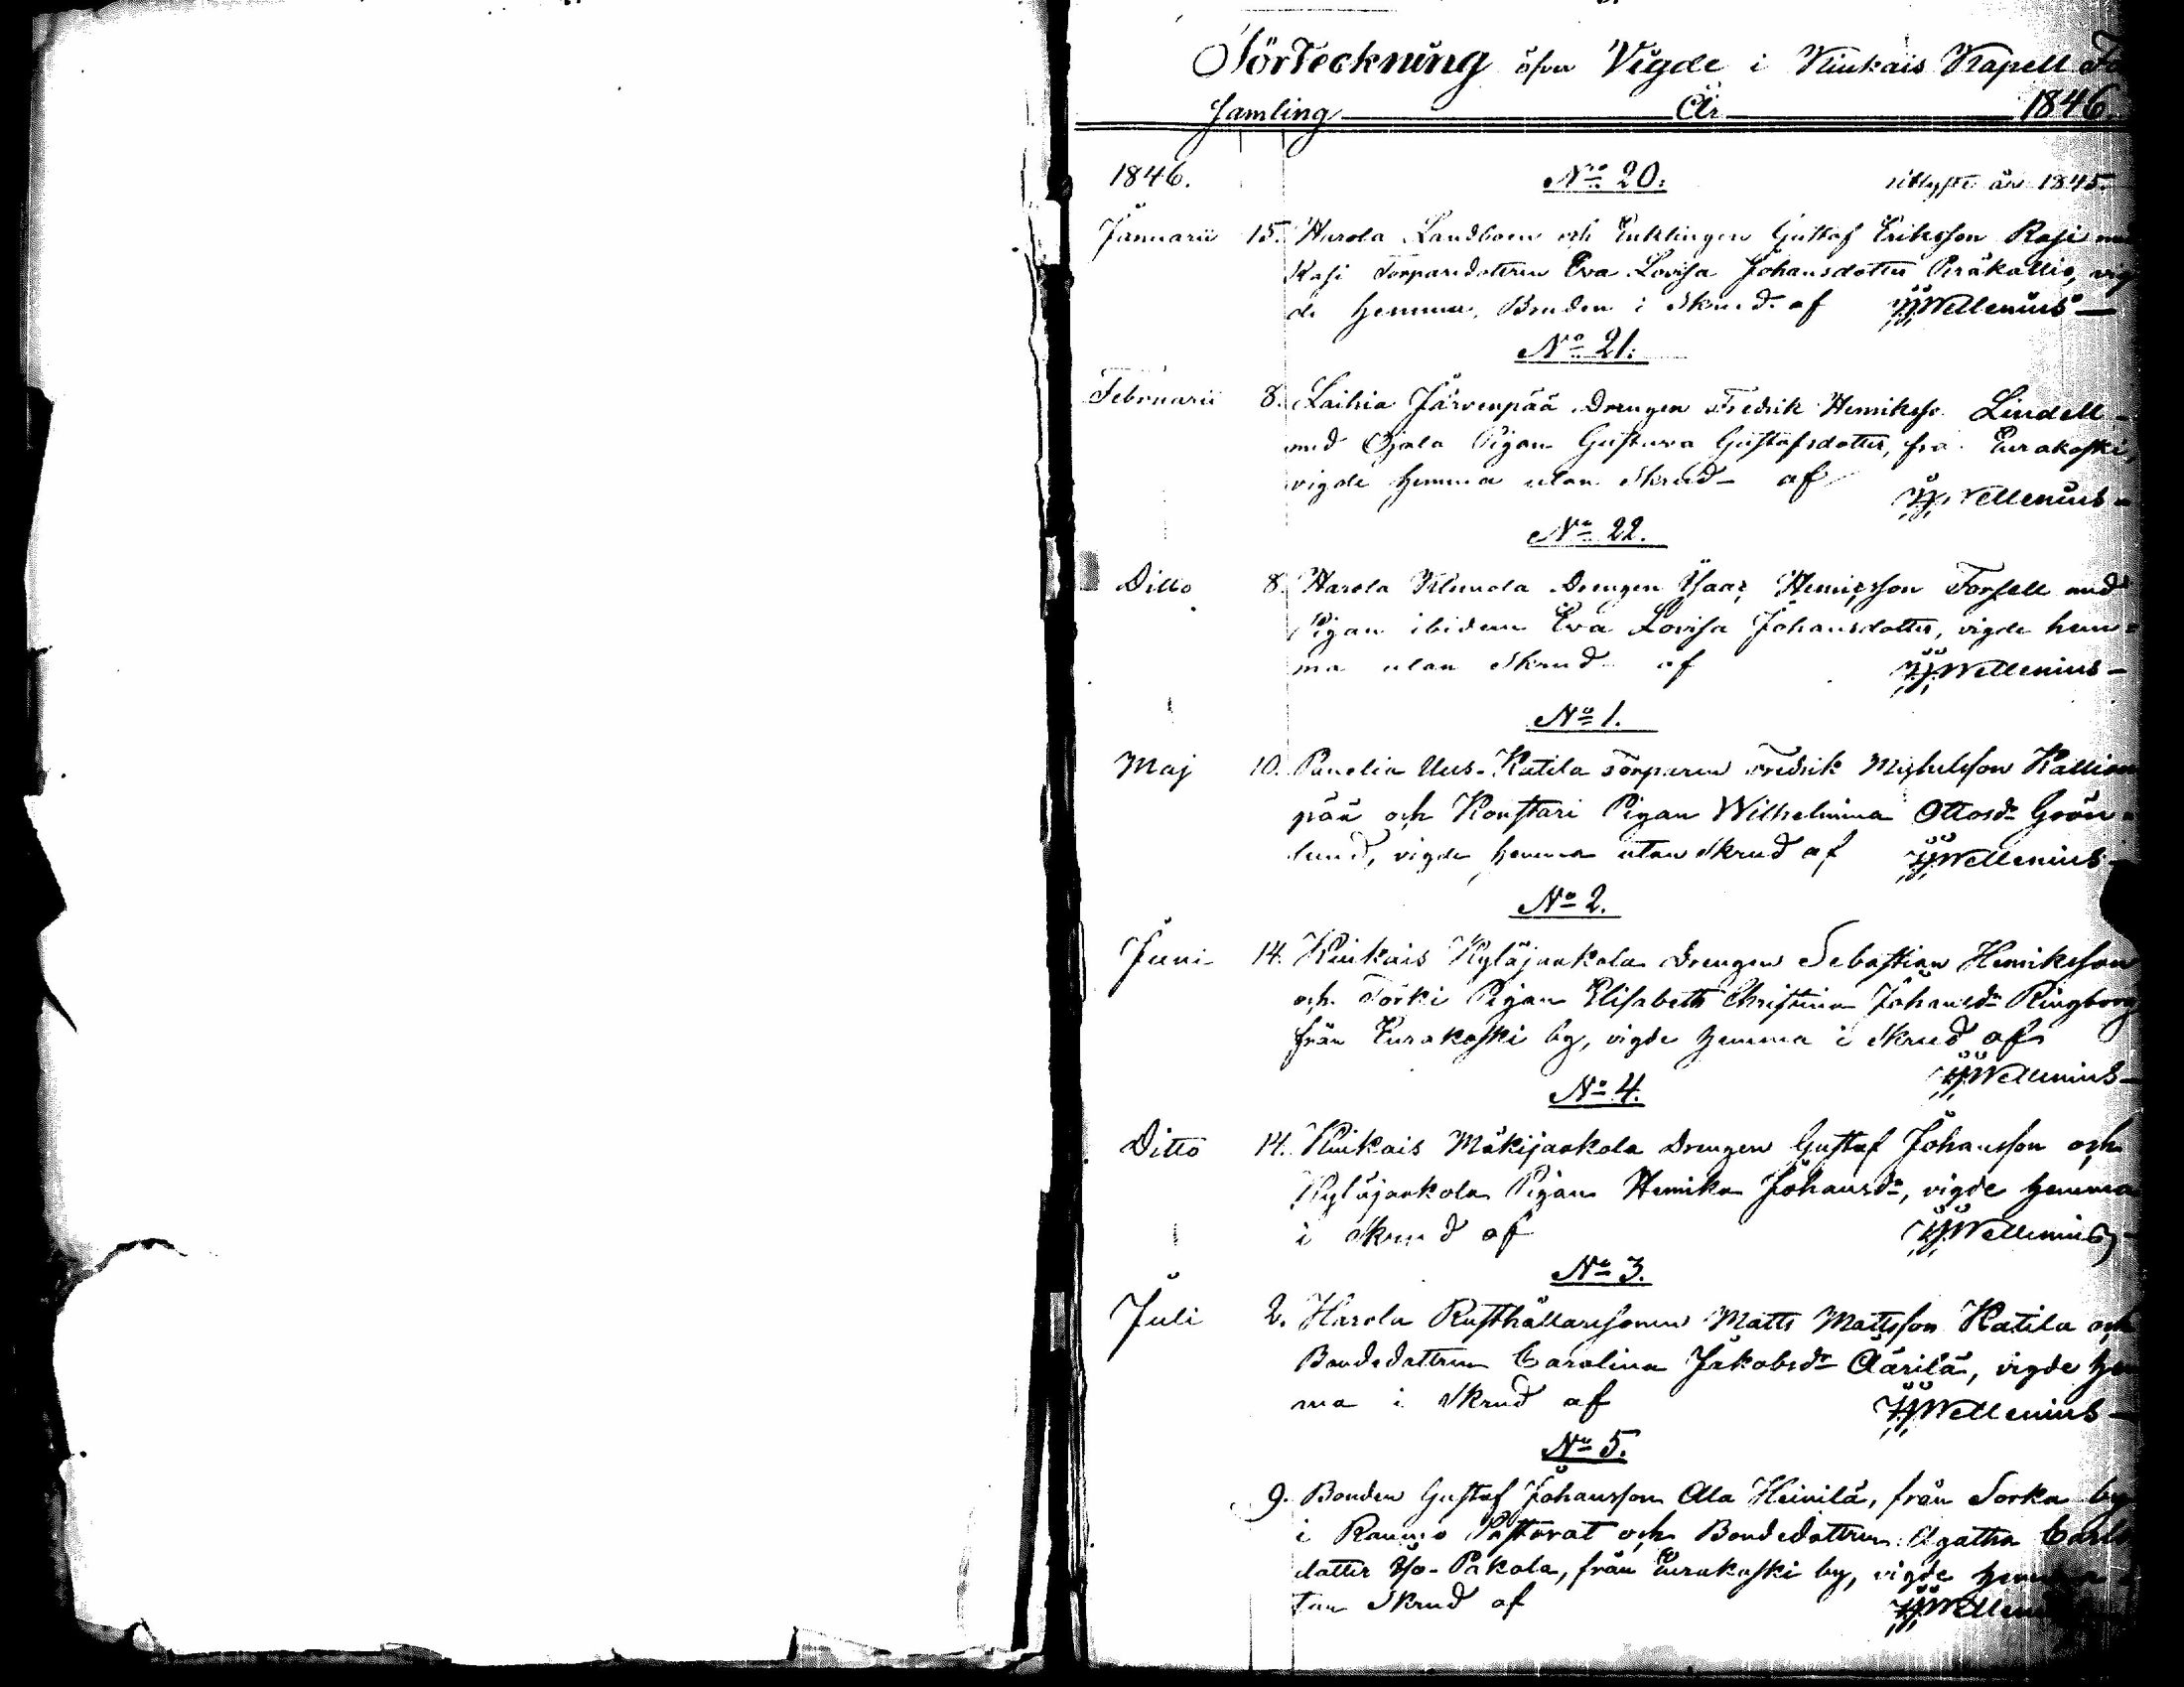 Förteckning öfver Vigde i Kiukais Kapell
Samling År 1846.
1846. No 20. utlyste år 1845.
Januarii 15. Harola Landboen och Enklingen Gustaf Eriksson Rasi med
Rasi Torparedottren Eva Lovisa Johansdotter Peräkallio, vig
de hemma, Bruden i Skrud af JJWellenius
No 21.
Februarii 8. Laihia Järvenpää Drengen Fredrik Henriksso Lindell
med Ojala Pigan Gustava Gustafsdotter, frå Eurakoski,
vigde hemma utan Skrud af JJWellenius
No 22.
Ditto 8. Harola Klemola Drengen Isaac Henricsson Forsell med
Pigan ibidem Eva Lovisa Johansdotter, vigde hem=
ma utan Skrud af JJWellenius
No 1.
Maj 10. Panelia Uus-Katila Torparen Fredrik Michelsson Kallion
pää och Konstari Pigan Wilhelmina Ottosdr Grön=
lund, vigde hemma utan Skrud af JJWellenius
No 2.
Juni 14. Kiukais Kyläjaakola Drengen Sebastian Henriksson
och Törki Pigan Elisabeth Christina Johansdr Ringborg
från Eurakoski by, vigde hemma i Skrud af
JJWellenius
No 4.
Ditto 14. Kiukais Mäkijaakola Drengen Gustaf Johansson och
Kyläjaakola Pigan Henrika Johansdr, vigde hemma
i Skrud af JJWellenius
No 3.
Juli 2. Harola Rusthållaresonen Matts Mattsson Katila och
Bondedottren Carolina Jakobsdr Äärilä, vigde hem
ma i Skrud af JJWellenius
No 5.
9. Bonden Gustaf Johansson Ala Heinilä, från Sorka by
i Raumo Pastorat och Bondedottren Agatha Carls
dotter Iso-Pakola, från Eurakoski by, vigde hemma
tan Skrud af JJWellenius